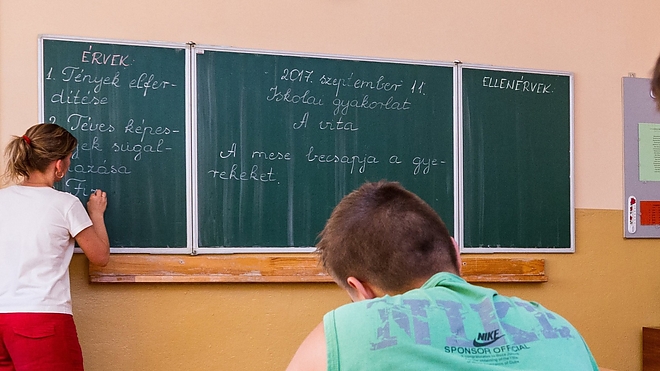 ÉRVEK
1. Tények elfer-
dítése
2. Téves képes-
ségek sugal-
mazása
Fi
2017. szeptember 11.
Iskolai gyakorlat
A vita
A mese becsapja a gye-
rekeket.
ELLENÉRVEK
NIKE
SPONSOR OFFICIAL